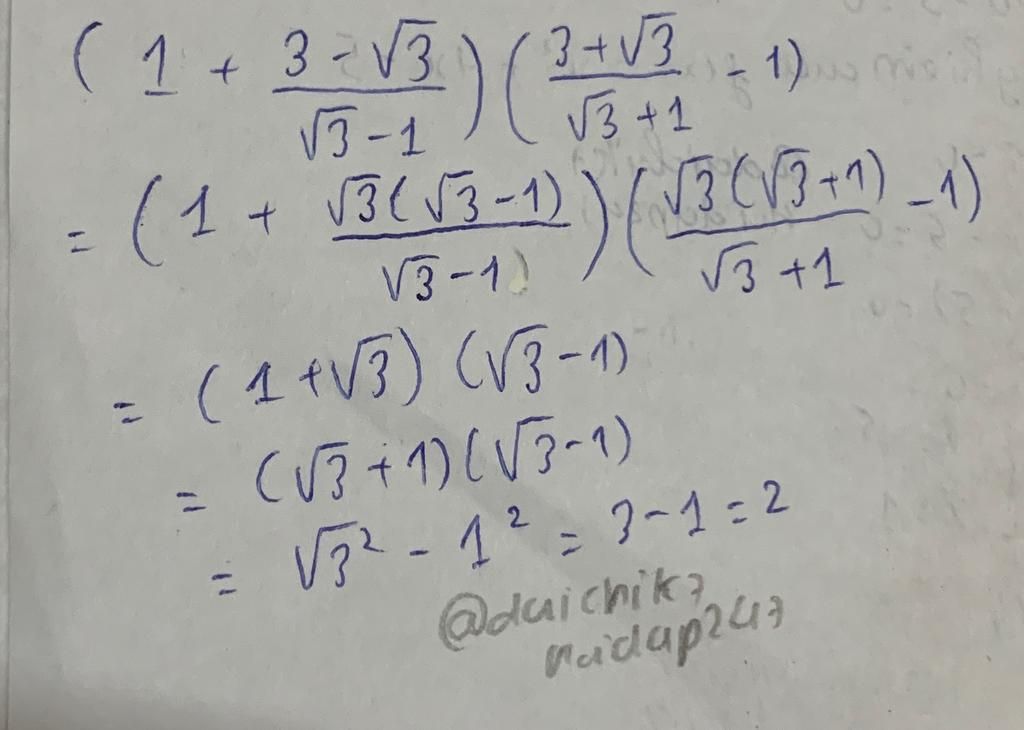 ( 1 + \frac{3 - \sqrt{3}}{\sqrt{3} - 1} ) ( \frac{3 + \sqrt{3}}{\sqrt{3} + 1} - 1 )
= ( 1 + \frac{\sqrt{3}(\sqrt{3} - 1)}{\sqrt{3} - 1} ) ( \frac{\sqrt{3}(\sqrt{3} + 1)}{\sqrt{3} + 1} - 1 )
= (1 + \sqrt{3}) (\sqrt{3} - 1)
= (\sqrt{3} + 1)(\sqrt{3} - 1)
= \sqrt{3}^2 - 1^2 = 3 - 1 = 2
@daichik7